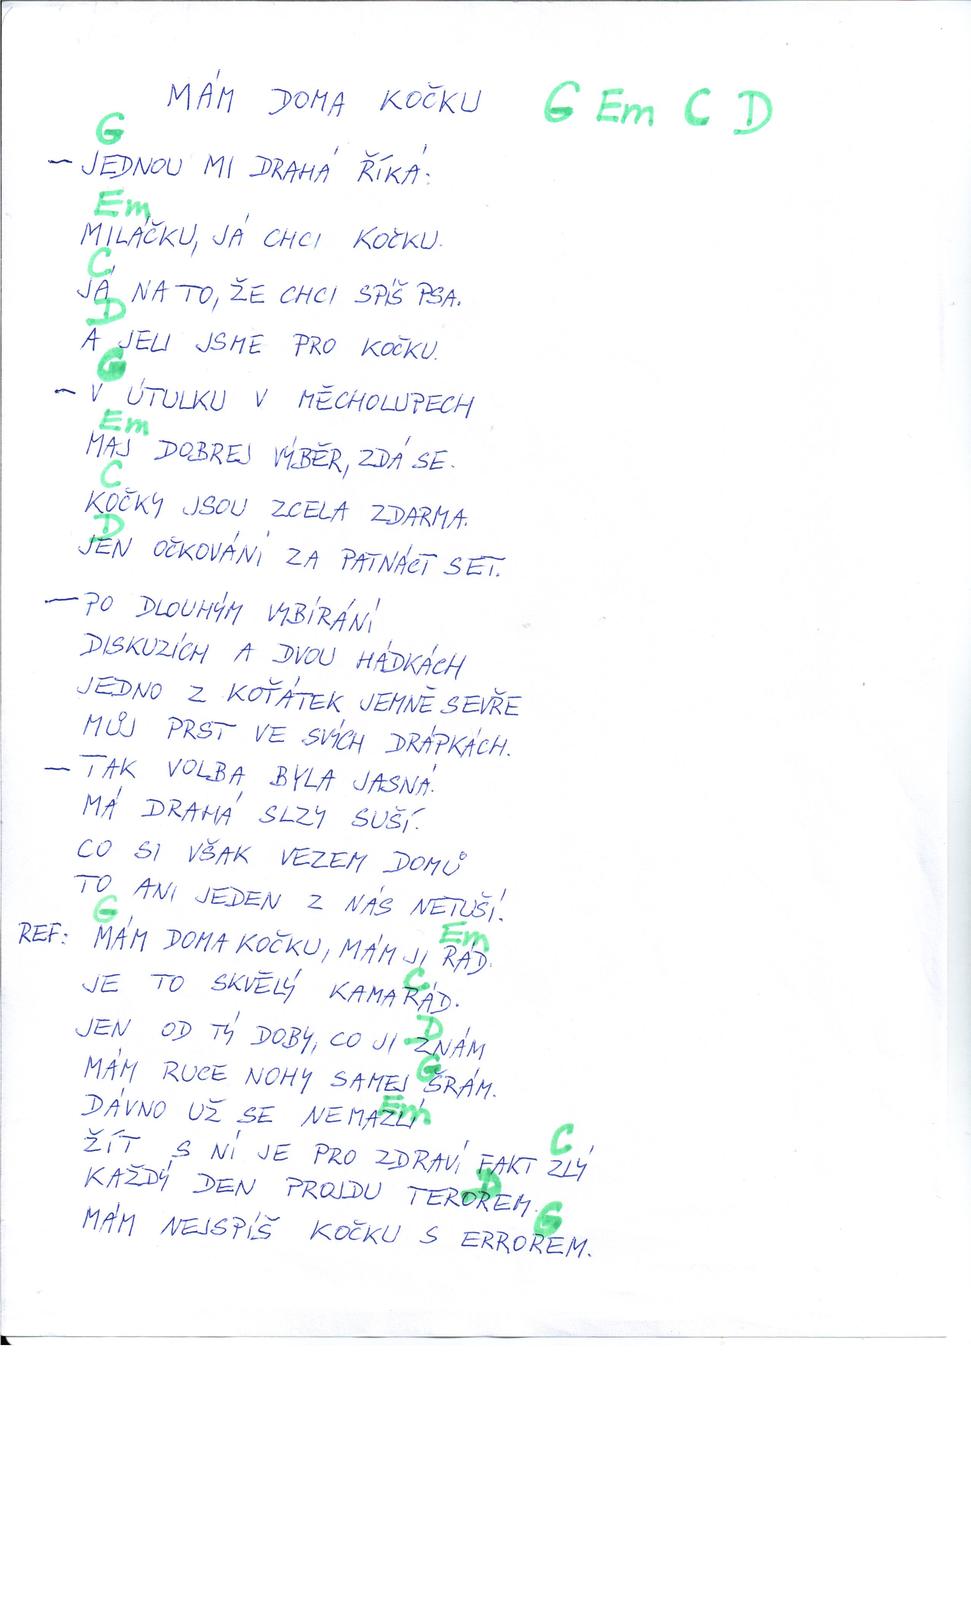 MÁM DOMA KOČKU G Em C D
G
- JEDNOU MI DRAHÁ ŘÍKÁ:
Em
MILÁČKU, JÁ CHCI KOČKU.
C
JÁ NA TO, ŽE CHCI SPÍŠ PSA.
D
A JELI JSME PRO KOČKU.
G
- V ÚTULKU V MĚCHOLUPECH
Em
MAJ DOBREJ VÝBĚR, ZDÁ SE.
C
KOČKY JSOU ZCELA ZDARMA.
D
JEN OČKOVÁNÍ ZA PATNÁCT SET.
- PO DLOUHÝM VYBÍRÁNÍ
DISKUZÍCH A DVOU HÁDKÁCH
JEDNO Z KOŤÁTEK JEMNĚ SEVŘE
MŮJ PRST VE SVÝCH DRÁPKÁCH.
- TAK VOLBA BYLA JASNÁ.
MÁ DRAHÁ SLZY SUŠÍ.
CO SI VŠAK VEZEM DOMŮ
TO ANI JEDEN Z NÁS NETUŠÍ.
G Em
REF: MÁM DOMA KOČKU, MÁM JI RÁD.
C
JE TO SKVĚLÝ KAMARÁD.
D
JEN OD TÝ DOBY, CO JI ZNÁM
G
MÁM RUCE NOHY SAMEJ ŠRÁM.
Em
DÁVNO UŽ SE NEMAZLÍ
C
ŽÍT S NÍ JE PRO ZDRAVÍ FAKT ZLÝ
D
KAŽDÝ DEN PROJDU TEROREM.
G
MÁM NEJSPÍŠ KOČKU S ERROREM.